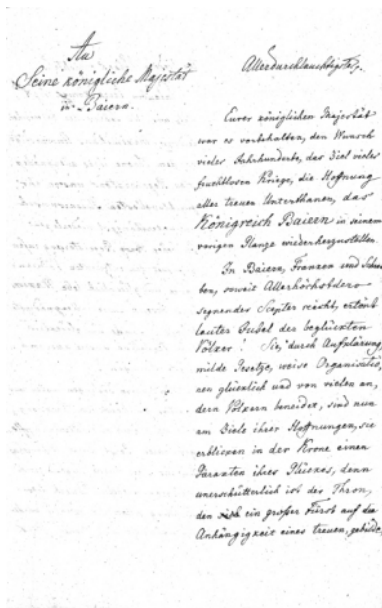 An
Seine königliche Majestät
in Baiern.
Allerdurchlauchtigster,
Eurer königlichen Majestät
war es vorbehalten, den Wunsch
vieler Jahrhunderte, das Ziel vieler
fruchtlosen Kriege, die Hoffnung
aller treuen Unterthanen, das
Königreich Baiern in seinem
vorigen Range wiederherzustellen.
In Baiern, Franken und Schwa
ben, soweit Allerhöchstdero
segnender Scepter reicht, ertönt
lauter Jubel der beglückten
Völker! Sie, durch Aufklärung,
milde Gesetze, weise Organisatio,
nen glücklich und von vielen an,
dern Völkern beneidet, sind nun
am Ziele ihrer Hoffnungen, sie
erblicken in der Krone einen
Garanten ihres Glückes, denn
unerschütterlich ist der Thron,
den ein großer Fürst auf die
Anhängigkeit eines treuen, gebilde,